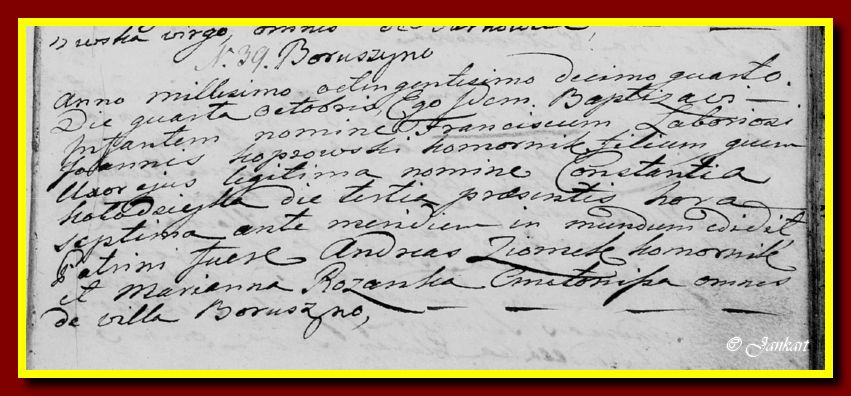 virgo, omnis de
N. 39. Boruszyno
Anno millesimo octingentesimo decimo quarto.
Die quarta octobris, Ego Idem. Baptizavi —
Infantem nomine Franciscum Laboriosi
Joannes komornik filium quem
Uxor ejus legitima nomine Constantia
die tertia praesentis hora
septima ante meridiem in mundum edidit,
Patrini fuere Andreas Ziomek komornik
et Marianna Rozanka Cmetonissa omnes
de villa Boruszyno,
© Jankart